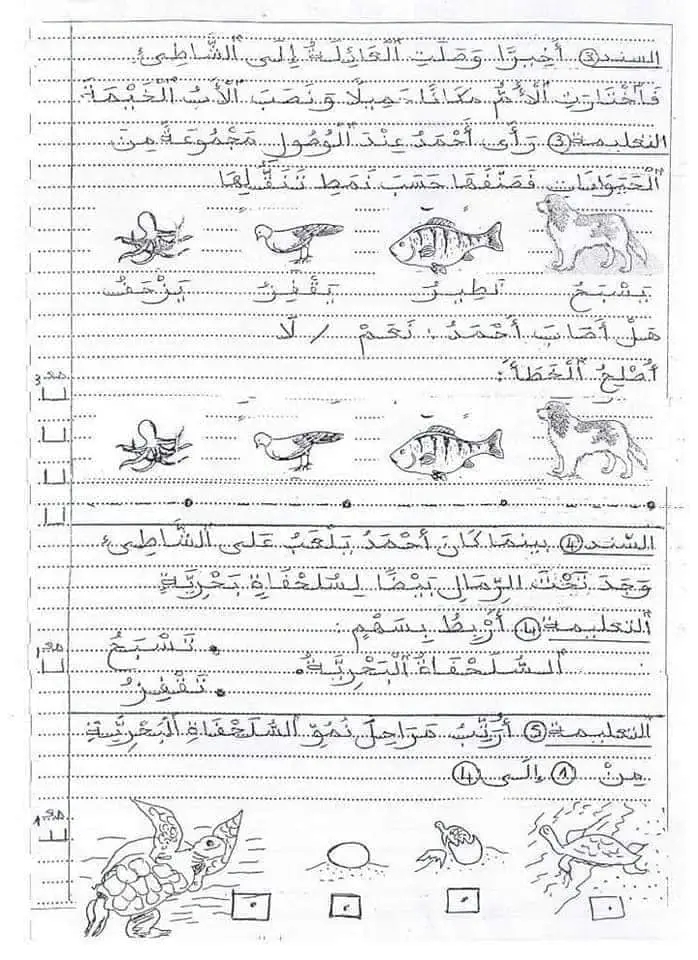 السند ③ أَخِيرًا وَصَلَتِ الْعَائِلَةُ إِلَى الشَّاطِئِ
فَاخْتَارَتِ الْأُمُّ مَكَانًا جَمِيلًا وَنَصَبَ الْأَبُ الْخَيْمَةَ
التعليمة ③ رَأَى أَحْمَدُ عِنْدَ الْوُصُولِ مَجْمُوعَةً مِنَ
الْحَيَوَانَاتِ فَصَنَّفَهَا حَسَبَ نَمَطِ تَنَقُّلِهَا
يَسْبَحُ يَطِيرُ يَقْفِزُ يَزْحَفُ
هَلْ أَصَابَ أَحْمَدُ : نَعَمْ / لَا
أُصْلِحُ الْخَطَأَ :
مع 3
السّند ④ بينما كَانَ أَحْمَدُ يَلْعَبُ عَلَى الشَّاطِئِ
وَجَدَ تَحْتَ الرِّمَالِ بَيْضًا لِسُلَحْفَاةٍ بَحْرِيَّةٍ
التعليمة ④ أَرْبِطُ بِسَهْمٍ :
تَسْبَحُ
السُّلَحْفَاةُ الْبَحْرِيَّةُ
تَقْفِزُ
مع 1
التعليمة ⑤ أُرَتِّبُ مَرَاحِلَ نُمُوِّ السُّلَحْفَاةِ الْبَحْرِيَّةِ
مِنْ ① إِلَى ④
مع 1